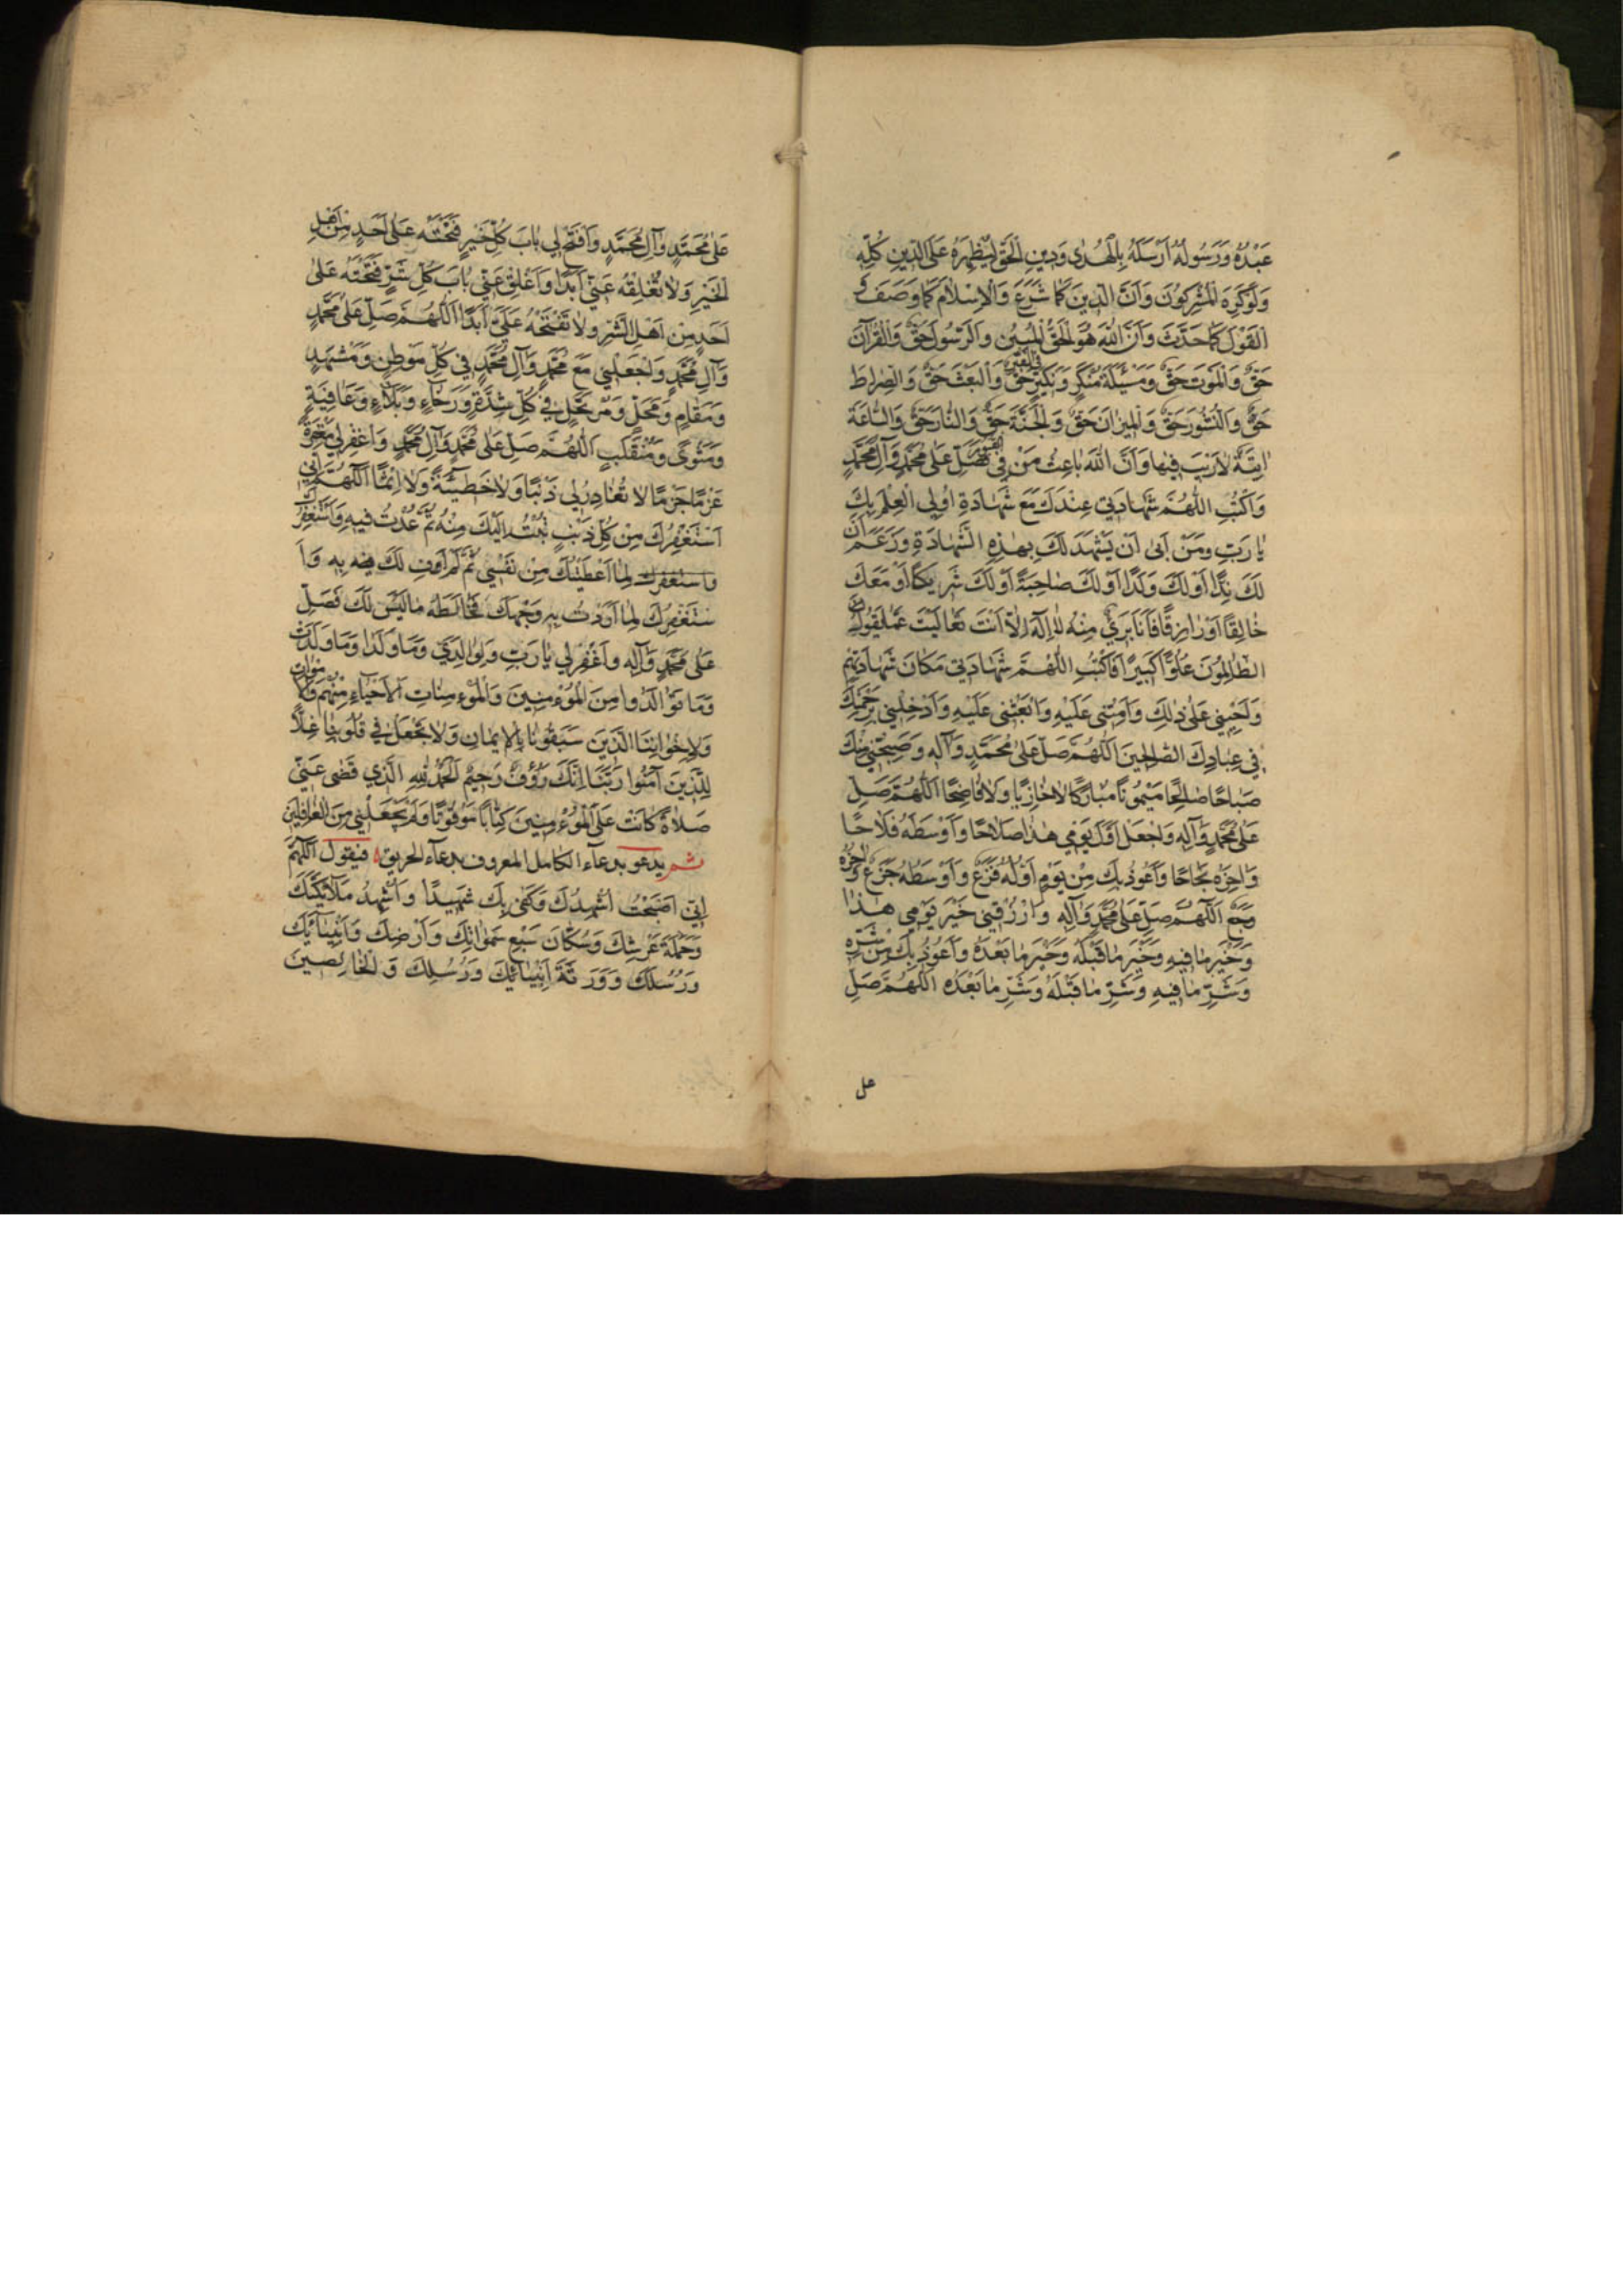 عَبْدُهُ وَرَسُولُهُ اَرْسَلَهُ بِالْهُدٰى وَدِينِ الْحَقِّ لِيُظْهِرَهُ عَلَى الدِّينِ كُلِّهِ
وَلَوْ كَرِهَ الْمُشْرِكُونَ وَاَنَّ الدِّينَ كَمَا شَرَعَ وَالْاِسْلَامَ كَمَا وَصَفَ وَ
الْقَوْلَ كَمَا حَدَّثَ وَاَنَّ اللّٰهَ هُوَ الْحَقُّ الْمُبِينُ وَالرَّسُولَ حَقٌّ وَالْقُرْآنَ
حَقٌّ وَالْمَوْتَ حَقٌّ وَمَسْئَلَةَ مُنْكَرٍ وَنَكِيرٍ فِي الْقَبْرِ حَقٌّ وَالْبَعْثَ حَقٌّ وَالصِّرٰاطَ
حَقٌّ وَالنُّشُورَ حَقٌّ وَالْمِيزٰانَ حَقٌّ وَالْجَنَّةَ حَقٌّ وَالنَّارَ حَقٌّ وَالسَّاعَةَ
اٰتِيَةٌ لَارَيْبَ فِيهَا وَاَنَّ اللّٰهَ بَاعِثُ مَنْ فِي الْقُبُورِ فَصَلِّ عَلٰى مُحَمَّدٍ وَآلِ مُحَمَّدٍ
وَاكْتُبِ اللّٰهُمَّ شَهَادَتِي عِنْدَكَ مَعَ شَهَادَةِ اُولِي الْعِلْمِ بِكَ
يَا رَبِّ وَمَنْ اَبٰى اَنْ يَشْهَدَ لَكَ بِهٰذِهِ الشَّهَادَةِ وَزَعَمَ اَنَّ
لَكَ نِدًّا اَوْ لَكَ وَلَدًا اَوْ لَكَ صَاحِبَةً اَوْ لَكَ شَرِيكًا اَوْ مَعَكَ
خَالِقًا اَوْ رَازِقًا فَاَنَا بَرِيءٌ مِنْهُ لَا اِلٰهَ اِلَّا اَنْتَ تَعَالَيْتَ عَمَّا يَقُولُ
الظَّالِمُونَ عُلُوًّا كَبِيرًا فَاكْتُبِ اللّٰهُمَّ شَهَادَتِي مَكَانَ شَهَادَتِهِمْ
وَاَحْيِنِي عَلٰى ذٰلِكَ وَاَمِتْنِي عَلَيْهِ وَابْعَثْنِي عَلَيْهِ وَاَدْخِلْنِي بِرَحْمَتِكَ
فِي عِبَادِكَ الصَّالِحِينَ اَللّٰهُمَّ صَلِّ عَلٰى مُحَمَّدٍ وَآلِهِ وَصَبِّحْنِي مِنْكَ
صَبَاحًا صَالِحًا مَيْمُونًا مُبَارَكًا لَا خَازِيًا وَلَا فَاضِحًا اَللّٰهُمَّ صَلِّ
عَلٰى مُحَمَّدٍ وَآلِهِ وَاجْعَلْ اَوَّلَ يَوْمِي هٰذَا صَلَاحًا وَاَوْسَطَهُ فَلَاحًا
وَاٰخِرَهُ نَجَاحًا وَاَعُوذُ بِكَ مِنْ يَوْمٍ اَوَّلُهُ فَزَعٌ وَاَوْسَطُهُ جَزَعٌ وَاٰخِرُهُ
وَجَعٌ اَللّٰهُمَّ صَلِّ عَلٰى مُحَمَّدٍ وَآلِهِ وَارْزُقْنِي خَيْرَ يَوْمِي هٰذَا
وَخَيْرَ مَا فِيهِ وَخَيْرَ مَا قَبْلَهُ وَخَيْرَ مَا بَعْدَهُ وَاَعُوذُ بِكَ مِنْ شَرِّهِ
وَشَرِّ مَا فِيهِ وَشَرِّ مَا قَبْلَهُ وَشَرِّ مَا بَعْدَهُ اَللّٰهُمَّ صَلِّ
عل
عَلٰى مُحَمَّدٍ وَآلِ مُحَمَّدٍ وَافْتَحْ لِي بَابَ كُلِّ خَيْرٍ فَتَحْتَهُ عَلٰى اَحَدٍ مِنْ اَهْلِ
الْخَيْرِ وَلَا تُغْلِقْهُ عَنِّي اَبَدًا وَاَغْلِقْ عَنِّي بَابَ كُلِّ شَرٍّ فَتَحْتَهُ عَلٰى
اَحَدٍ مِنْ اَهْلِ الشَّرِّ وَلَا تَفْتَحْهُ عَلَيَّ اَبَدًا اَللّٰهُمَّ صَلِّ عَلٰى مُحَمَّدٍ
وَآلِ مُحَمَّدٍ وَاجْعَلْنِي مَعَ مُحَمَّدٍ وَآلِ مُحَمَّدٍ فِي كُلِّ مَوْطِنٍ وَمَشْهَدٍ
وَمَقَامٍ وَمَحَلٍّ وَمُرْتَحَلٍ فِي كُلِّ شِدَّةٍ وَرَخَاءٍ وَبَلَاءٍ وَعَافِيَةٍ
وَمَثْوًى وَمُنْقَلَبٍ اَللّٰهُمَّ صَلِّ عَلٰى مُحَمَّدٍ وَآلِ مُحَمَّدٍ وَاغْفِرْ لِي مَغْفِرَةً
عَزْمًا جَزْمًا لَا تُغَادِرُ لِي ذَنْبًا وَلَا خَطِيئَةً وَلَا اِثْمًا اَللّٰهُمَّ اِنِّي
اَسْتَغْفِرُكَ مِنْ كُلِّ ذَنْبٍ تُبْتُ اِلَيْكَ مِنْهُ ثُمَّ عُدْتُ فِيهِ وَاَسْتَغْفِرُكَ
وَاَسْتَغْفِرُكَ لِمَا اَعْطَيْتُكَ مِنْ نَفْسِي ثُمَّ لَمْ اَوْفِ لَكَ بِهِ وَاَ
سْتَغْفِرُكَ لِمَا اَرَدْتُ بِهِ وَجْهَكَ فَخَالَطَهُ مَا لَيْسَ لَكَ فَصَلِّ
عَلٰى مُحَمَّدٍ وَآلِهِ وَاغْفِرْ لِي يَا رَبِّ وَلِوَالِدَيَّ وَمَا وَلَدَا وَمَا وَلَدْتُ
وَمَا تَوَالَدُوا مِنَ الْمُؤْمِنِينَ وَالْمُؤْمِنَاتِ اَلْاَحْيَاءِ مِنْهُمْ وَالْاَمْوَاتِ
وَلِاِخْوَانِنَا الَّذِينَ سَبَقُونَا بِالْاِيمَانِ وَلَا تَجْعَلْ فِي قُلُوبِنَا غِلًّا
لِلَّذِينَ آمَنُوا رَبَّنَا اِنَّكَ رَؤُفٌ رَحِيمٌ اَلْحَمْدُ لِلّٰهِ الَّذِي قَضٰى عَنِّي
صَلَاةً كَانَتْ عَلَى الْمُؤْمِنِينَ كِتَابًا مَوْقُوتًا وَلَمْ يَجْعَلْنِي مِنَ الْغَافِلِينَ
ثم يدعو بدعآء الكامل المعروف بدعآء الحريق فيقول اَللّٰهُمَّ
اِنِّي اَصْبَحْتُ اُشْهِدُكَ وَكَفٰى بِكَ شَهِيدًا وَاُشْهِدُ مَلَآئِكَتَكَ
وَحَمَلَةَ عَرْشِكَ وَسُكَّانَ سَبْعِ سَمٰوَاتِكَ وَاَرْضِكَ وَاَنْبِيَآئَكَ
وَرُسُلَكَ وَوَرَثَةَ اَنْبِيَائِكَ وَرُسُلِكَ وَالْخَالِصِينَ